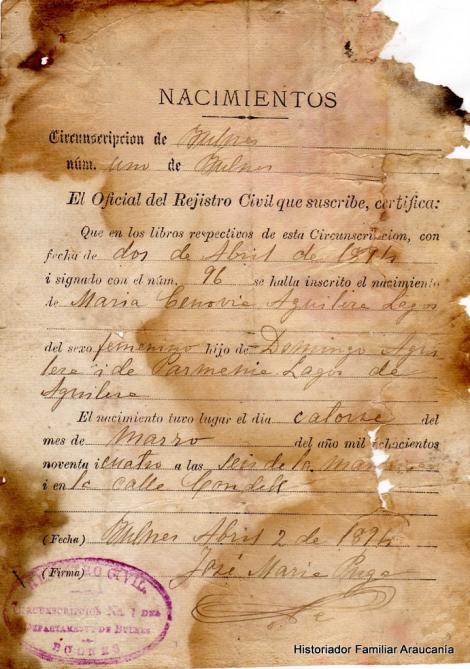 NACIMIENTOS
Circunscripcion de Bulnes
núm. uno de Bulnes
El Oficial del Rejistro Civil que suscribe, certifica:
Que en los libros respectivos de esta Circunscripcion, con
fecha de dos de Abril de 1894
i signado con el núm. 96 se halla inscrito el nacimiento
de Maria Cenovia Aguilera Lagos
del sexo femenino hijo de Domingo Agui
lera i de Parmenia Lagos de
Aguilera
El nacimiento tuvo lugar el dia catorse del
mes de Marzo del año mil ochocientos
noventa i cuatro a las seis de la mañana
i en la calle Condell
(Fecha) Bulnes Abril 2 de 1894
(Firma) José Maria
REGISTRO CIVIL
CIRCUNSCRIPCION No. 1 DEL
DEPARTAMENTO DE BULNES
BULNES
Historiador Familiar Araucanía